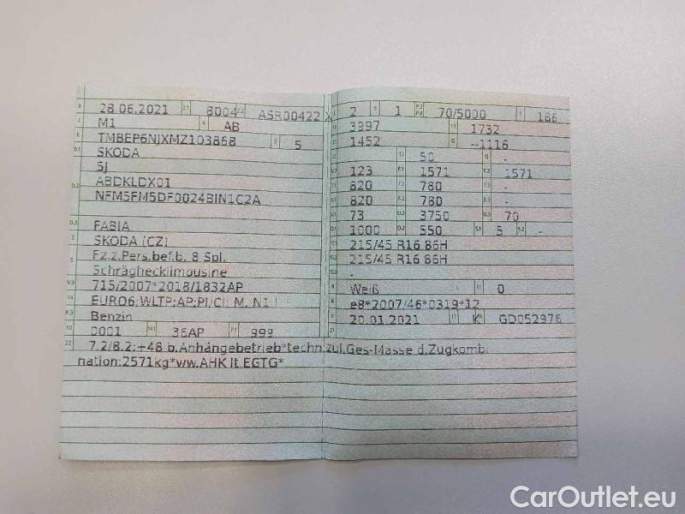 28.06.2021 8004 ASR00422
M1 AB
TMBEP6NJXMZ103868 5
SKODA
5J
ABDKLDX01
NFM5FM5DF0024BIN1C2A
-
FABIA
SKODA (CZ)
Fz.z.Pers.bef.b. 8 Spl.
Schräghecklimousine
715/2007*2018/1832AP
EURO6;WLTP;AP;PI/CI; M, N1 I
Benzin
0001 36AP 999
2 1 70/5000 186
3997 1732
1452 --1116
50 -
123 1571 1571
820 780 -
820 780 -
73 3750 70
1000 550 5 -
215/45 R16 86H
215/45 R16 86H
-
Weiß 0
e8*2007/46*0319*12
20.01.2021 K GD052976
7.2/8.2:+48 b.Anhängebetrieb*techn.zul.Ges-Masse d.Zugkombi
nation:2571kg*ww.AHK lt.EGTG*
CarOutlet.eu